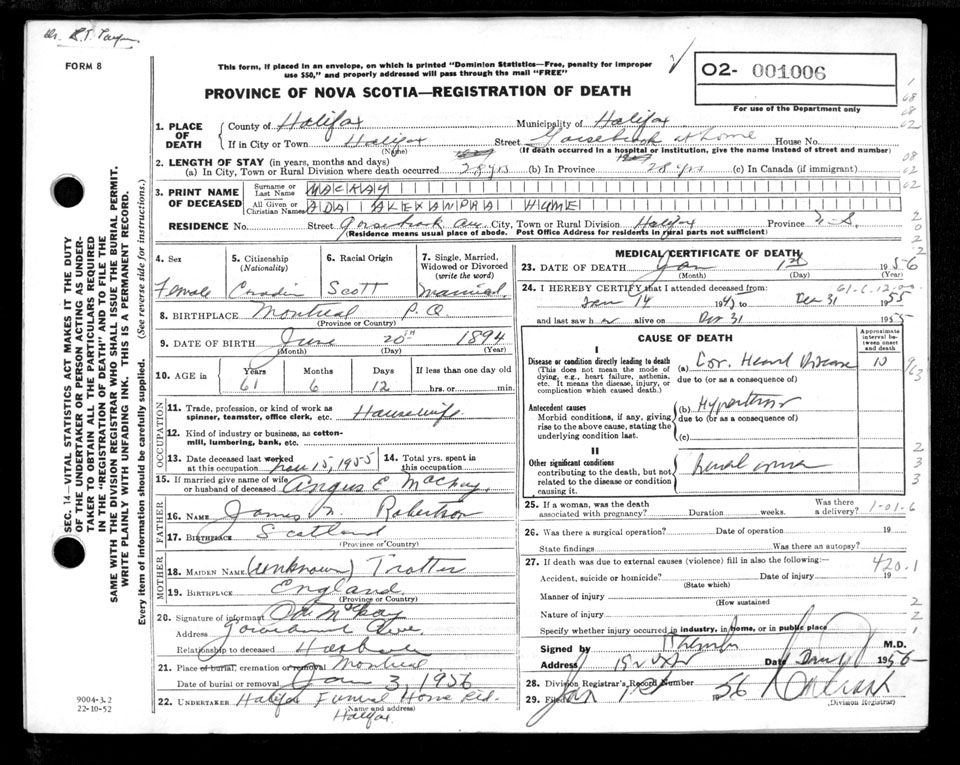 Dr.
FORM 8
This form, if placed in an envelope, on which is printed "Dominion Statistics—Free, penalty for improper
use $50," and properly addressed will pass through the mail "FREE"
PROVINCE OF NOVA SCOTIA—REGISTRATION OF DEATH
O2- 001006
For use of the Department only
1. PLACE OF DEATH
County of Halifax Municipality of Halifax
If in City or Town Halifax Street at home House No.
(Name) (If death occurred in a hospital or institution, give the name instead of street and number)
2. LENGTH OF STAY (in years, months and days)
(a) In City, Town or Rural Division where death occurred 28 yrs (b) In Province 28 yrs (c) In Canada (if immigrant)
3. PRINT NAME OF DECEASED
Surname or Last Name MACKAY
All Given or Christian Names ADA ALEXANDRA HUME
RESIDENCE No. Street Gorsebrook Ave City, Town or Rural Division Halifax Province N-S.
(Residence means usual place of abode. Post Office Address for residents in rural parts not sufficient)
4. Sex Female
5. Citizenship (Nationality) Canadian
6. Racial Origin Scott
7. Single, Married, Widowed or Divorced (write the word) Married
8. BIRTHPLACE Montreal P.Q
(Province or Country)
9. DATE OF BIRTH June 20th 1894
(Month) (Day) (Year)
10. AGE in Years 61 Months 6 Days 12 If less than one day old
hrs. or min.
OCCUPATION
11. Trade, profession, or kind of work as spinner, teamster, office clerk, etc. Housewife
12. Kind of industry or business, as cotton-mill, lumbering, bank, etc.
13. Date deceased last worked at this occupation Nov 15, 1955
14. Total yrs. spent in this occupation
15. If married give name of wife or husband of deceased Angus E Mackay
FATHER
16. NAME James Robertson
17. BIRTHPLACE Scotland
(Province or Country)
MOTHER
18. MAIDEN NAME (Unknown) Trotter
19. BIRTHPLACE England
(Province or Country)
20. Signature of informant
Address Ave.
Relationship to deceased Husband
21. Place of burial, cremation or removal Montreal
Date of burial or removal Jan 3, 1956
22. UNDERTAKER Halifax Funeral Home Ltd.
(Name and address)
Halifax
MEDICAL CERTIFICATE OF DEATH
23. DATE OF DEATH Jan 1st 1956
(Month) (Day) (Year)
24. I HEREBY CERTIFY that I attended deceased from:
Jan 14 to Dec 31 1955
and last saw her alive on Dec 31 1955
CAUSE OF DEATH
Approximate interval between onset and death
I
Disease or condition directly leading to death
(This does not mean the mode of dying, e.g., heart failure, asthenia, etc. It means the disease, injury, or complication which caused death.)
(a) Cor. Heart Disease 10
due to (or as a consequence of)
Antecedent causes
Morbid conditions, if any, giving rise to the above cause, stating the underlying condition last.
(b)
due to (or as a consequence of)
(c)
II
Other significant conditions
contributing to the death, but not related to the disease or condition causing it.
25. If a woman, was the death associated with pregnancy? Duration weeks. Was there a delivery? 1-01-6
26. Was there a surgical operation? Date of operation 19
State findings Was there an autopsy?
27. If death was due to external causes (violence) fill in also the following:— 420.1
Accident, suicide or homicide? Date of injury 19
(State which)
Manner of injury
(How sustained)
Nature of injury
Specify whether injury occurred in industry, in home, or in public place
Signed by M.D.
Address Date 1956
28. Division Registrar's Record Number
29. Filed Jan 1956
(Division Registrar)
SEC. 14—VITAL STATISTICS ACT MAKES IT THE DUTY
OF THE UNDERTAKER OR PERSON ACTING AS UNDER-
TAKER TO OBTAIN ALL THE PARTICULARS REQUIRED
IN THE "REGISTRATION OF DEATH" AND TO FILE THE
SAME WITH THE DIVISION REGISTRAR WHO SHALL ISSUE THE BURIAL PERMIT.
WRITE PLAINLY WITH UNFADING INK. THIS IS A PERMANENT RECORD.
Every item of information should be carefully supplied. (See reverse side for instructions.)
9004-3.2
22-10-52